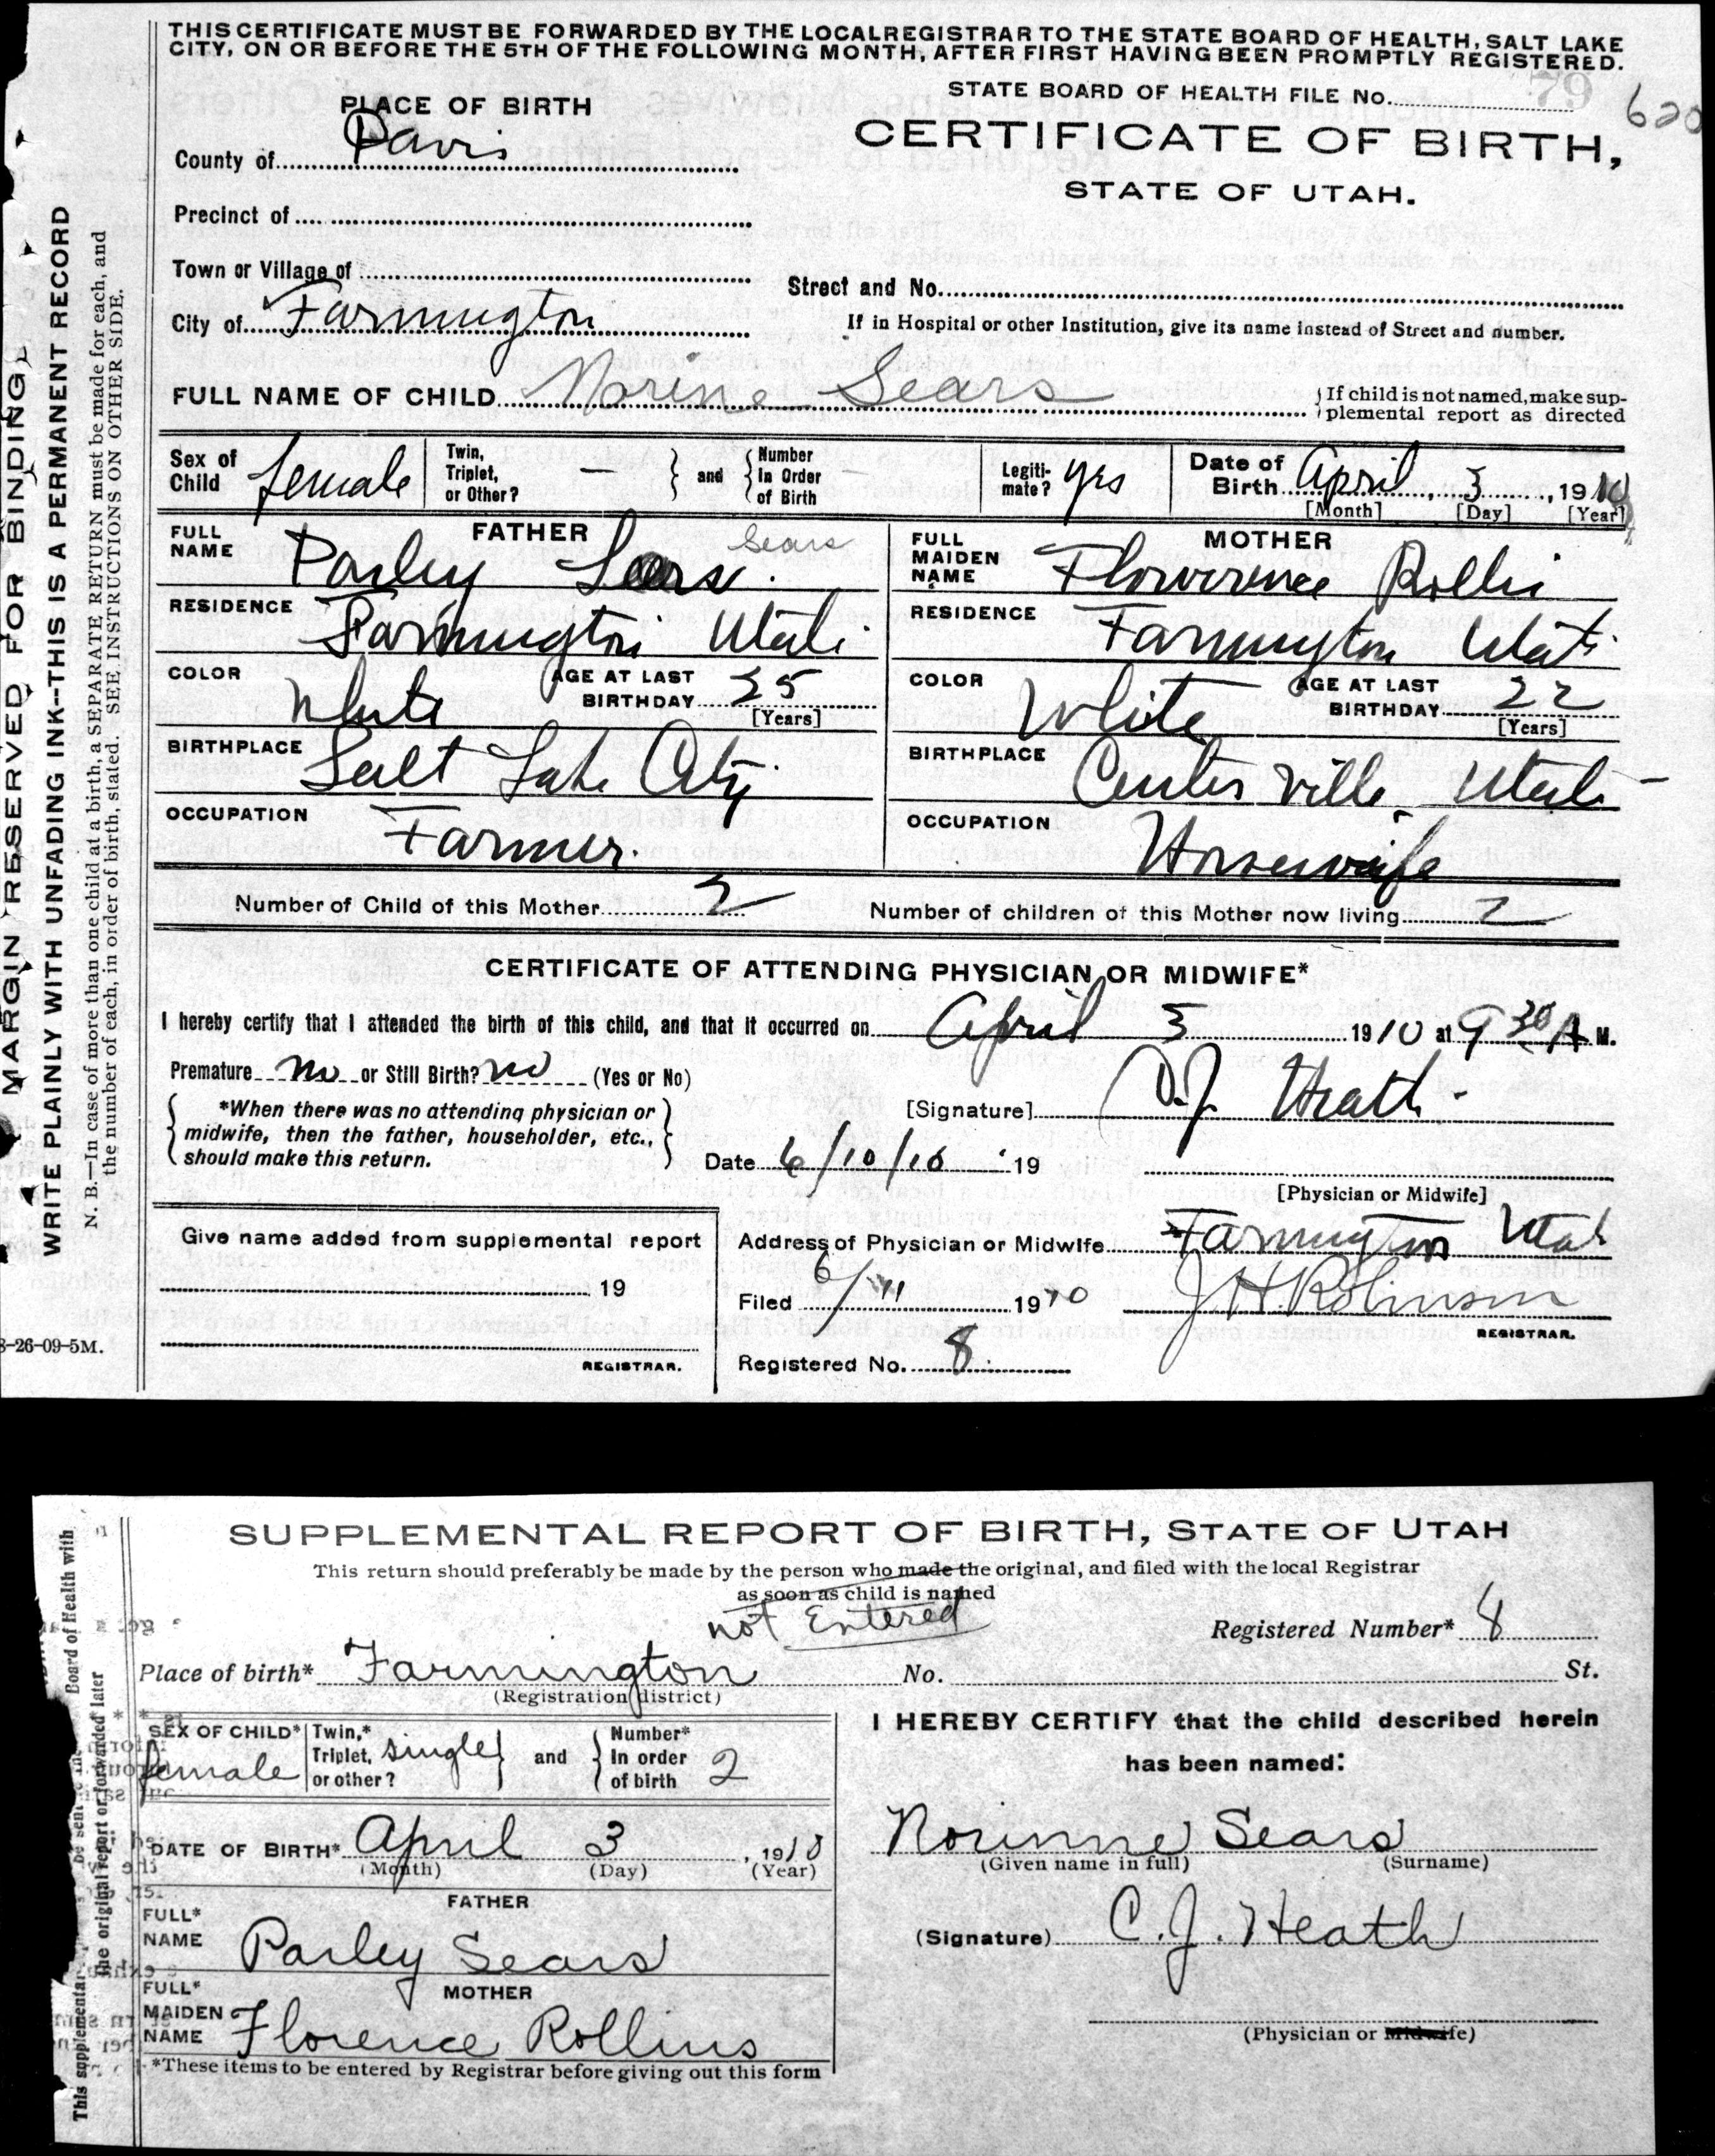 THIS CERTIFICATE MUST BE FORWARDED BY THE LOCAL REGISTRAR TO THE STATE BOARD OF HEALTH, SALT LAKE
CITY, ON OR BEFORE THE 5TH OF THE FOLLOWING MONTH, AFTER FIRST HAVING BEEN PROMPTLY REGISTERED.
STATE BOARD OF HEALTH FILE No. 79 620
PLACE OF BIRTH
CERTIFICATE OF BIRTH,
County of Davis
STATE OF UTAH.
Precinct of
Town or Village of
Street and No.
City of Farmington
If in Hospital or other Institution, give its name instead of Street and number.
FULL NAME OF CHILD Norine Sears
{If child is not named, make sup-
plemental report as directed
Sex of Child female
Twin, Triplet, or Other? — } and { Number In Order of Birth —
Legiti-mate? yes
Date of Birth April, 3, 1910
[Month] [Day] [Year]
FATHER
FULL NAME Parley Sears. Sears
RESIDENCE Farmington Utah
COLOR White AGE AT LAST BIRTHDAY 25
[Years]
BIRTHPLACE Salt Lake City
OCCUPATION Farmer.
MOTHER
FULL MAIDEN NAME Flowerence Rollins
RESIDENCE Farmington Utah
COLOR White AGE AT LAST BIRTHDAY 22
[Years]
BIRTHPLACE Center Ville Utah
OCCUPATION Housewife
Number of Child of this Mother 2 Number of children of this Mother now living 2
CERTIFICATE OF ATTENDING PHYSICIAN OR MIDWIFE*
I hereby certify that I attended the birth of this child, and that it occurred on April 3 1910 at 9 30 A M.
Premature no or Still Birth? no (Yes or No)
{*When there was no attending physician or
midwife, then the father, householder, etc.,
should make this return.}
[Signature] C.J. Heath
Date 6/10/10 19
[Physician or Midwife]
Give name added from supplemental report
19
REGISTRAR.
Address of Physician or Midwife Farmington Utah
Filed 6/11 1910 J.H. Robinson
REGISTRAR.
Registered No. 8
MARGIN RESERVED FOR BINDING
WRITE PLAINLY WITH UNFADING INK--THIS IS A PERMANENT RECORD
N. B.—In case of more than one child at a birth, a SEPARATE RETURN must be made for each, and
the number of each, in order of birth, stated. SEE INSTRUCTIONS ON OTHER SIDE.
8-26-09-5M.
SUPPLEMENTAL REPORT OF BIRTH, STATE OF UTAH
This return should preferably be made by the person who made the original, and filed with the local Registrar
as soon as child is named
not Entered
Registered Number* 8
Place of birth* Farmington No. St.
(Registration district)
SEX OF CHILD* female
Twin,* Triplet, or other? single } and { Number* In order of birth 2
DATE OF BIRTH* April 3, 1910
(Month) (Day) (Year)
FATHER
FULL* NAME Parley Sears
MOTHER
FULL* MAIDEN NAME Florence Rollins
*These items to be entered by Registrar before giving out this form
I HEREBY CERTIFY that the child described herein
has been named:
Norinne Sears
(Given name in full) (Surname)
(Signature) C. J. Heath
(Physician or Midwife)
Board of Health with
the original report or forwarded later
This supplementar be sent